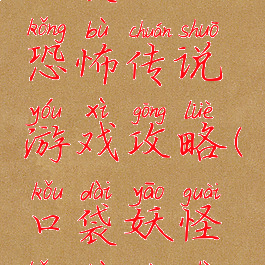 kǒng bù chuán shuō
恐怖传说
yóu xì gōng lüè
游戏攻略(
kǒu dài yāo guài
口袋妖怪